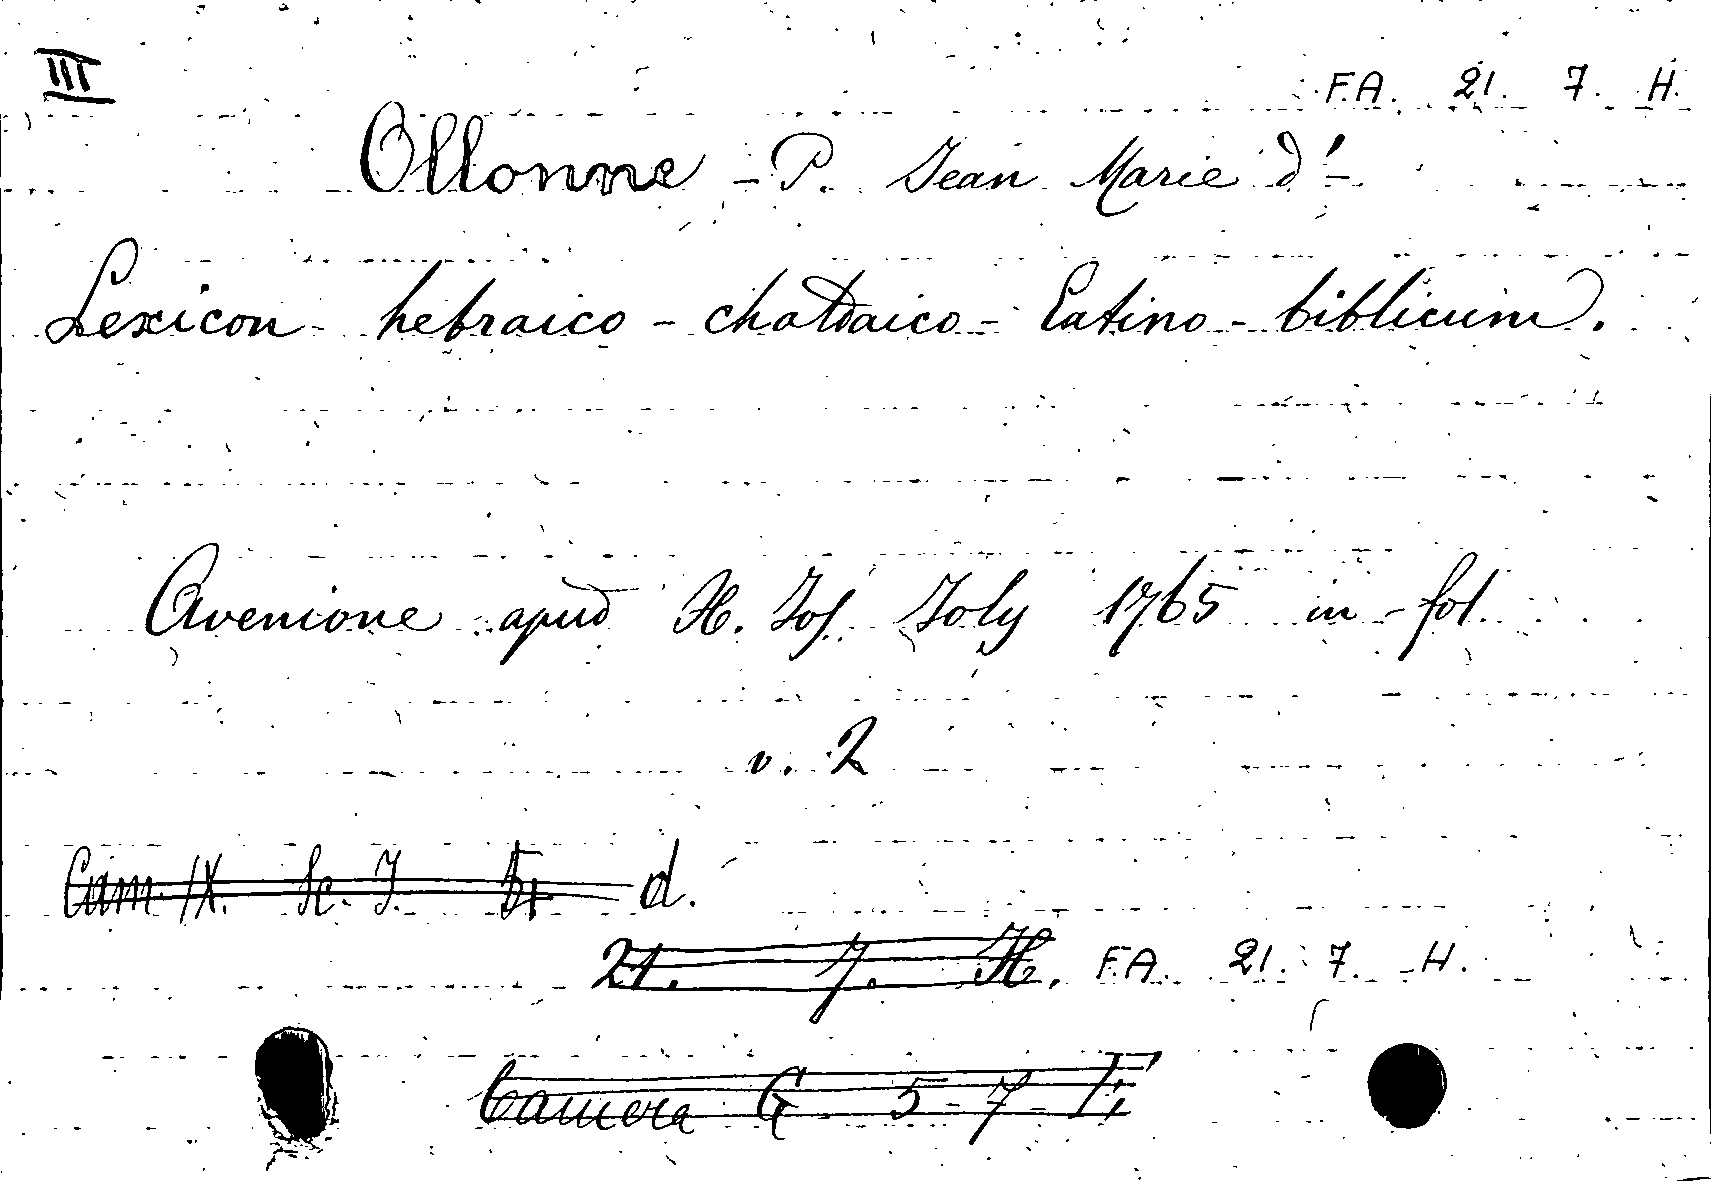 III
FA. 21. 7. H.
Ollonne - P. Jean Marie d'-
Lexicon hebraico - chaldaico - Latino - biblicum.
Avenione apud H. Jos. Joly 1765 in-fol.
v. 2
Cam. IX. Sc. J. 5 d.
21. 7. H. FA. 21. 7. H.
Camera G. 5-7-E